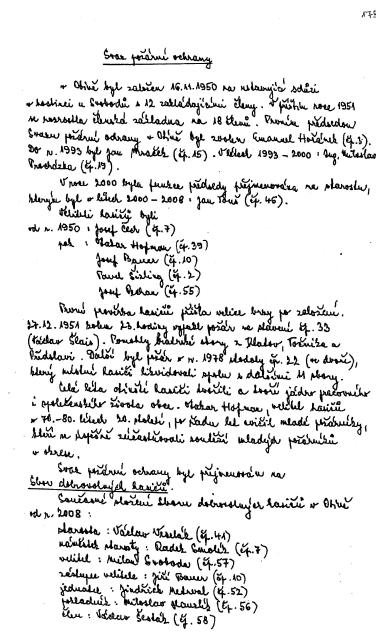 175
Svaz požární ochrany
v Obětě byl založen 16.11.1950 na ustavující schůzi
v hostinci u Svobodů s 12 zakládajícími členy. V příštím roce 1951
se rozrostla členská základna na 18 členů. Prvním předsedou
Svazu požární ochrany v byl zvolen Emanuel Hořánek (čp.3).
Do r. 1993 byl Jan (čp. 15). V létech 1993 – 2000 : Ing. Miloslav
Procházka (čp. 19).
V roce 2000 byla funkce předsedy přejmenována na starostu,
kterým byl v létech 2000 - 2008 : Jan Touš (čp. 45).
Veliteli hasičů byli
od r. 1950 : Josef Čech (čp. 7)
pak : Otakar Hofman (čp. 39)
Josef Bauer (čp. 10)
Pavel (čp. 2)
Josef (čp. 55)
První prověrka hasičů přišla velice brzy po založení.
27.12. 1951 kolem 23. hodiny vypukl požár na stavení čp. 33
(Václav Šlais). Pomohly hasičské sbory z Klatov, Točníka a
Předslavi. Další byl požár v r. 1978 stodoly čp. 22 (ve dvoře),
který místní hasiči likvidovali spolu s dalšími 11 sbory.
Celá léta hasiči tvořili a tvoří jádro pracovního
i společenského života obce. Otakar Hofman, velitel hasičů
v 70.-80. létech 20. století, po řadu let cvičil mladé požárníky,
kteří se úspěšně zúčastňovali soutěží mladých požárníků
v okrese.
Svaz požární ochrany byl přejmenován na
Sbor dobrovolných hasičů.
Současné složení Sboru dobrovolných hasičů v
od r. 2008 :
starosta : Václav Veselák (čp. 41)
náměstek starosty : Radek Smolík (čp. 7)
velitel : Milan Svoboda (čp. 57)
zástupce velitele : Jiří Bauer (čp. 10)
jednatel : Jindřich (čp. 52)
pokladník : Miloslav (čp. 56)
člen : Václav Šesták (čp. 58)